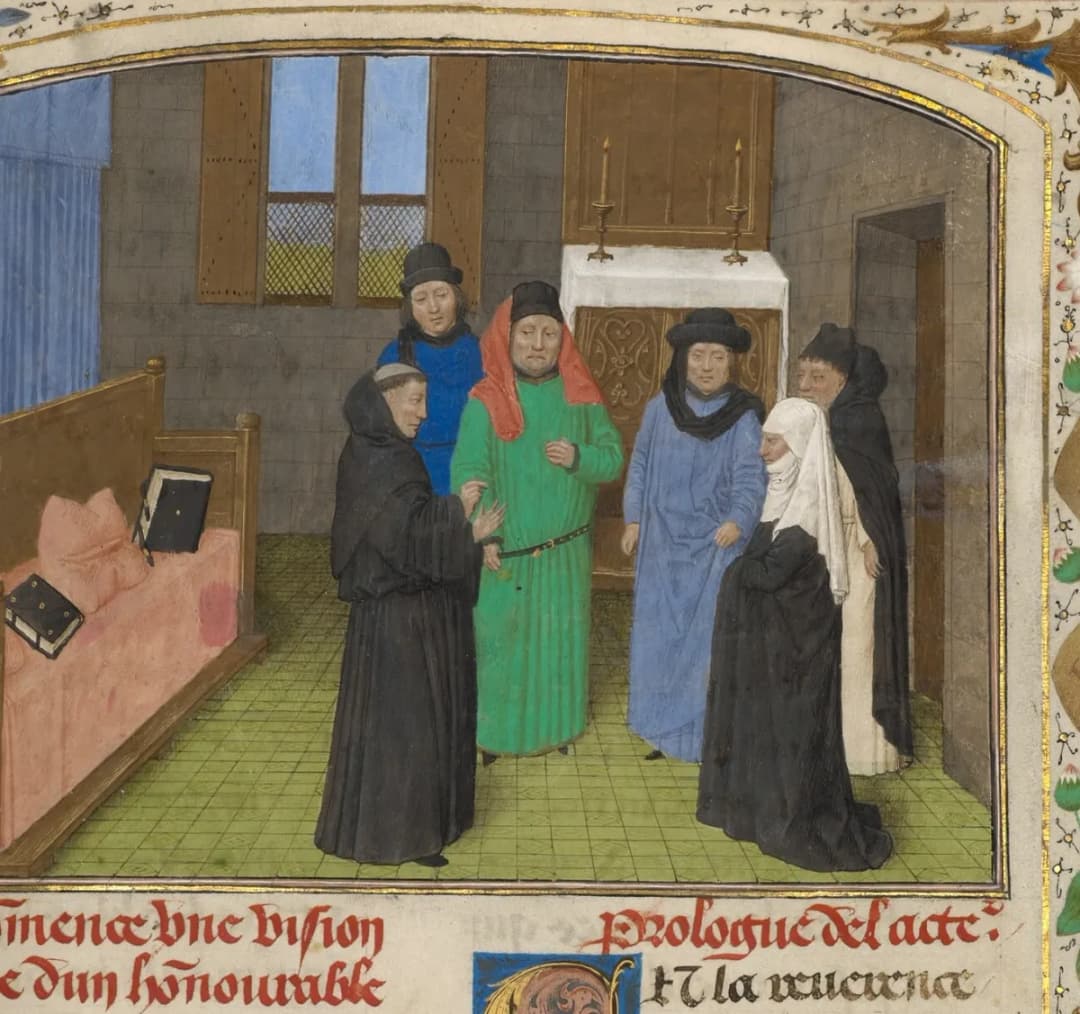 m̄mence vne vision
e dun hōnourable
Prologue de lacte
A la reuerence